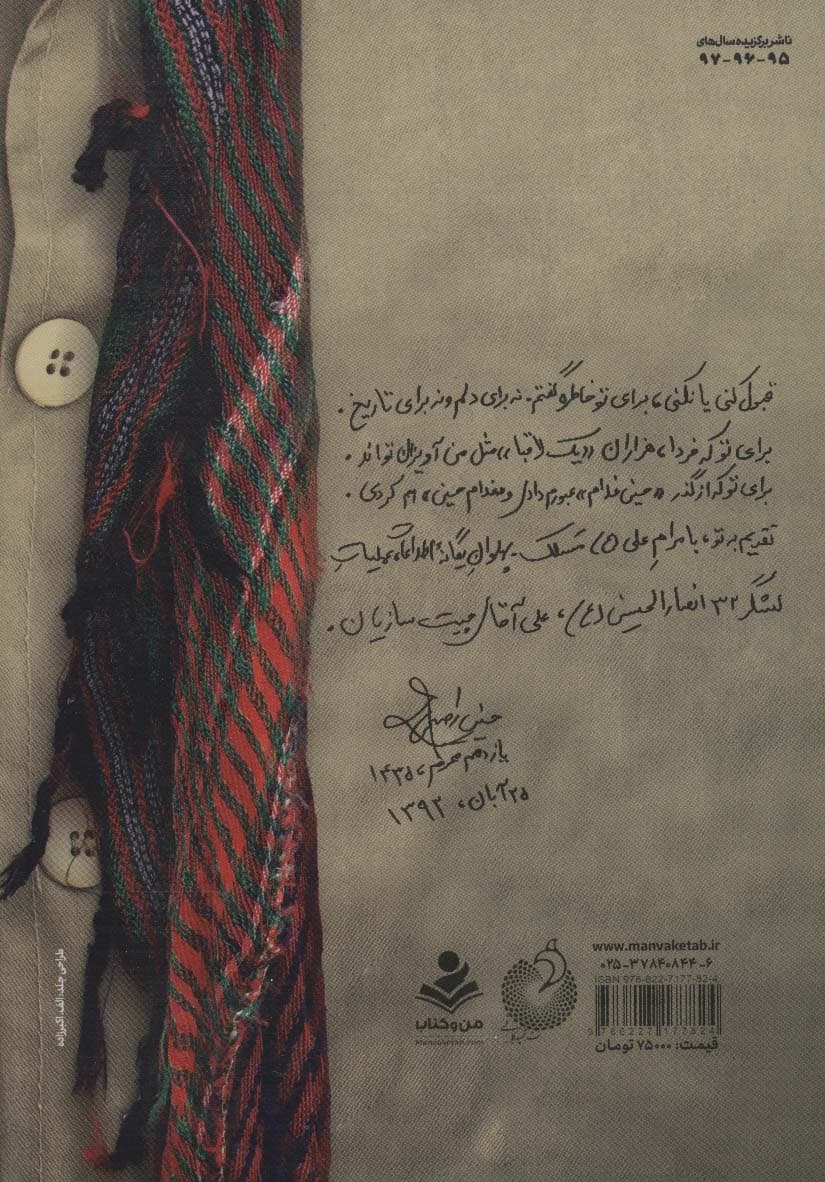 ناشر برگزیده سال‌های
۹۷-۹۶-۹۵
قبول کنی یا نکنی، برای تو خاطره گفتم. نه برای دلم و نه برای تاریخ.
برای تو که فردا، هزاران «یک لاقبا»، مثل من آویزان تواند.
برای تو که از گذر «حینی مدام»، عبورم دادی و مقدام حینی، ام کردی.
تقدیم به تو، با مرام علی (ع) مسلک. پهلوانِ یگانهٔ اطلاعات عملیاتِ
لشگر ۳۲ انصارالحسین (ع)، علی آقای چیت سازیان.
یازدهم محرم، ۱۴۳۵
۲۵ آبان، ۱۳۹۲
www.manvaketab.ir
۰۲۵-۳۷۸۴۰۸۴۴-۶
ISBN 978-622-7177-82-4
9786227177824
قیمت: ۷۵۰۰۰ تومان
من و کتاب
Manvaketab.com
طراحی جلد: الف. اکبرزاده